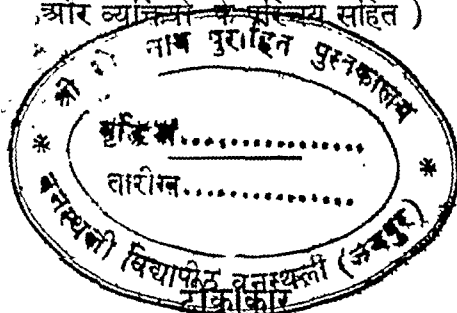 और व्यक्तियों के परिचय सहित )
श्री नाथ पुरोहित पुस्तकालय
तारीख..................
वनस्थली विद्यापीठ वनस्थली (जयपुर)
टीकाकार